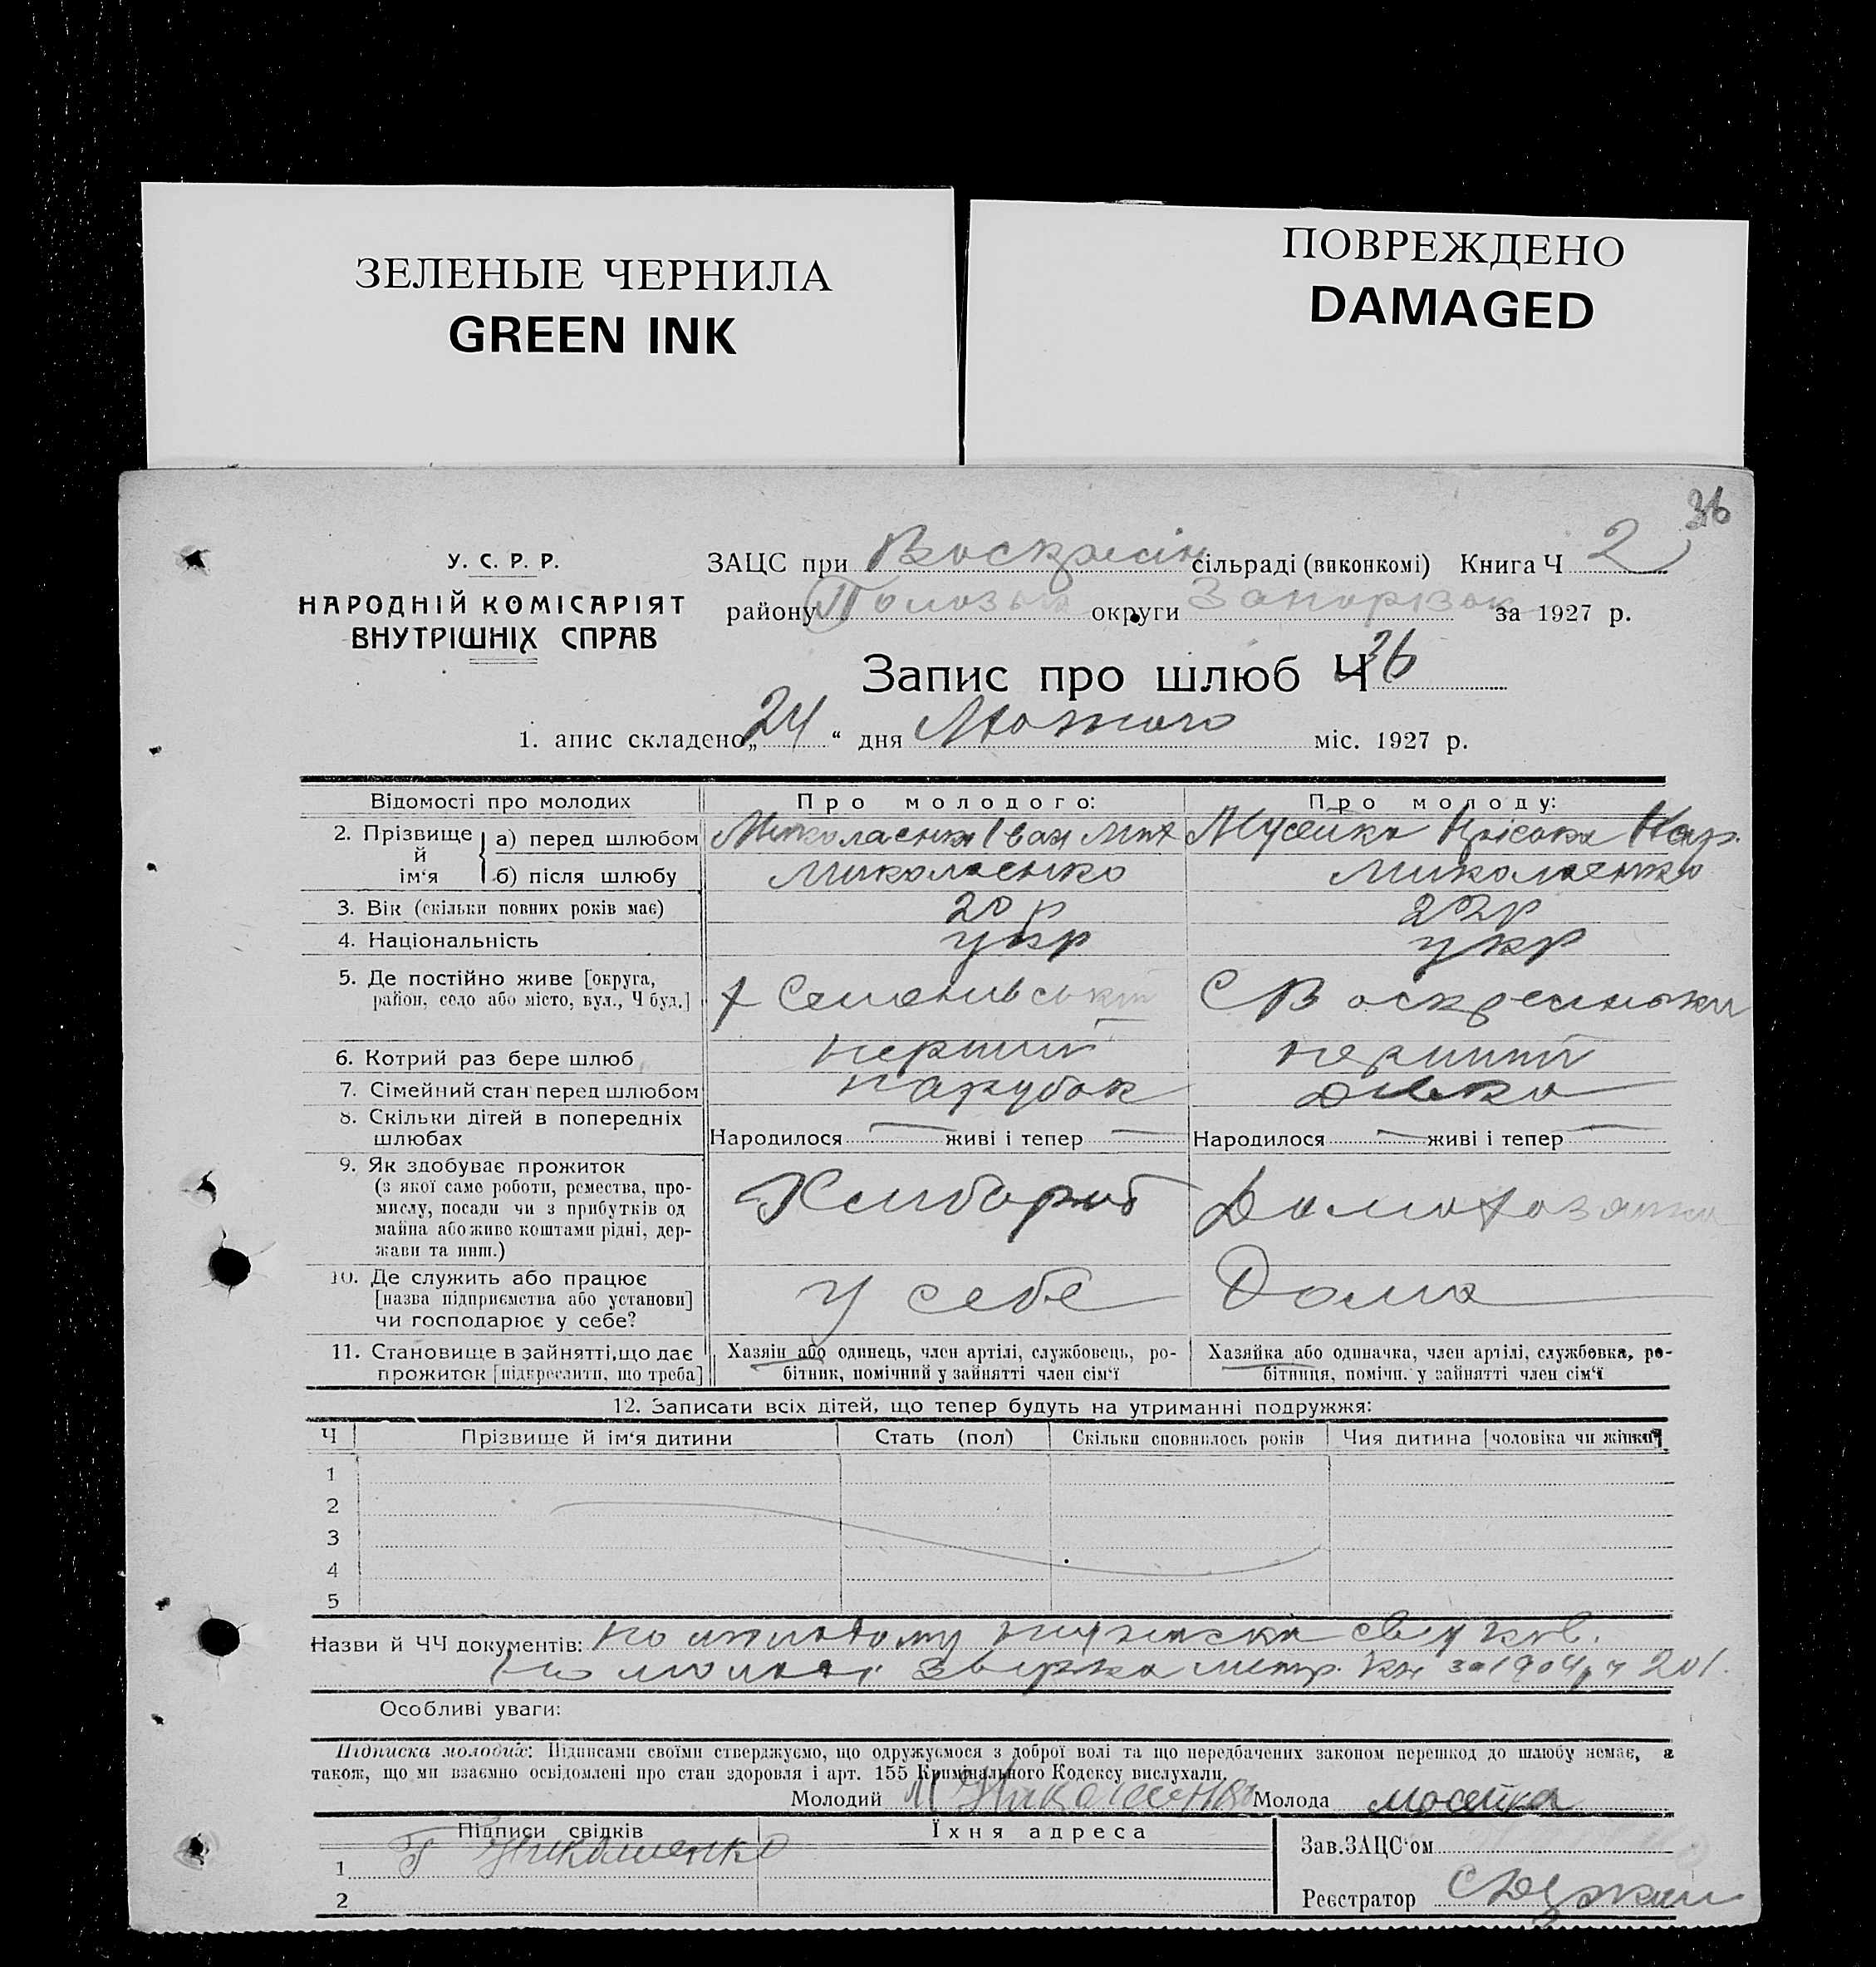 ЗЕЛЕНЫЕ ЧЕРНИЛА
GREEN INK
ПОВРЕЖДЕНО
DAMAGED
36
У. С. Р. Р.
НАРОДНІЙ КОМІСАРІЯТ
ВНУТРІШНІХ СПРАВ
ЗАЦС при Воскресін сільраді (виконкомі) Книга Ч 2
району округи Запорізьк за 1927 р.
Запис про шлюб Ч 36
1. апис складено „24“ дня Лютого міс. 1927 р.
Відомості про молодих Про молодого: Про молоду:
2. Прізвище й ім‘я а) перед шлюбом Миколаенко Іван Мих Мусейко Кар.
б) після шлюбу Миколаенко Миколаенко
3. Вік (скільки повних років має) 20 р 22р
4. Національність укр укр
5. Де постійно живе [округа,
район, село або місто, вул., Ч буд.] х Семенивський С Воскресеньки
6. Котрий раз бере шлюб перший перший
7. Сімейний стан перед шлюбом парубок дівка
8. Скільки дітей в попередніх
шлюбах Народилося — живі і тепер — Народилося — живі і тепер —
9. Як здобуває прожиток
(з якої саме роботи, ремества, про-
мислу, посади чи з прибутків од
майна або живе коштами рідні, дер-
жави та инш.) Хлибороб Домохозяйка
10. Де служить або працює
[назва підприємства або установи]
чи господарює у себе? у себе Дома
11. Становище в зайнятті, що дає
прожиток [підкреслити, що треба]
Хазяїн або одинець, член артілі, службовець, ро-
бітник, помічний у зайнятті член сім‘ї
Хазяйка або одиначка, член артілі, службовка, ро-
бітниця, помічн. у зайнятті член сім‘ї
12. Записати всіх дітей, що тепер будуть на утриманні подружжя:
Ч Прізвище й ім‘я дитини Стать (пол) Скільки сповнилось років Чия дитина [чоловіка чи жінки]
1
2
3
4
5
Назви й ЧЧ документів: по молодому
по молоді звірка метр. кн за 1904 р ч 201.
Особливі уваги:
Підписка молодих: Підписами своїми стверджуємо, що одружуємося з доброї волі та що передбачених законом перешкод до шлюбу немає, а
також, що ми взаємно освідомлені про стан здоровля і арт. 155 Кримінального Кодексу вислухали.
Молодий Молода мосейка
Підписи свідків Їхня адреса
Зав.ЗАЦС‘ом
1 Г Николаенко
Реєстратор
2